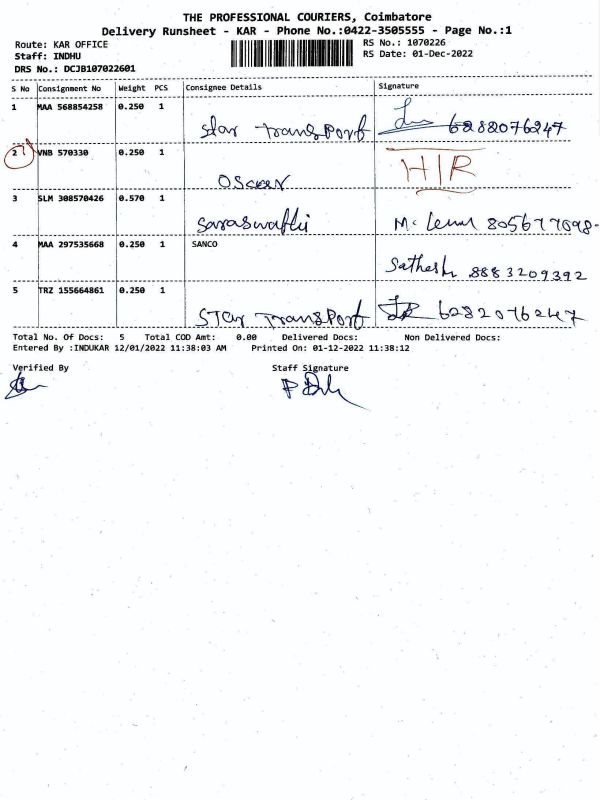 THE PROFESSIONAL COURIERS, Coimbatore
Delivery Runsheet - KAR - Phone No.:0422-3505555 - Page No.:1
Route: KAR OFFICE
Staff: INDHU
DRS No.: DCJB107022601
RS No.: 1070226
RS Date: 01-Dec-2022
S No Consignment No Weight PCS Consignee Details Signature
1 MAA 568854258 0.250 1
Star Transport 6282076247
2 VNB 570330 0.250 1 H/R
Oscar
3 SLM 308570426 0.570 1
Saraswathi
4 MAA 297535668 0.250 1 SANCO
Sathesh 8883209392
5 TRZ 155664861 0.250 1
STar Transport 6282076247
Total No. Of Docs: 5 Total COD Amt: 0.00 Delivered Docs: Non Delivered Docs:
Entered By :INDUKAR 12/01/2022 11:38:03 AM Printed On: 01-12-2022 11:38:12
Verified By Staff Signature